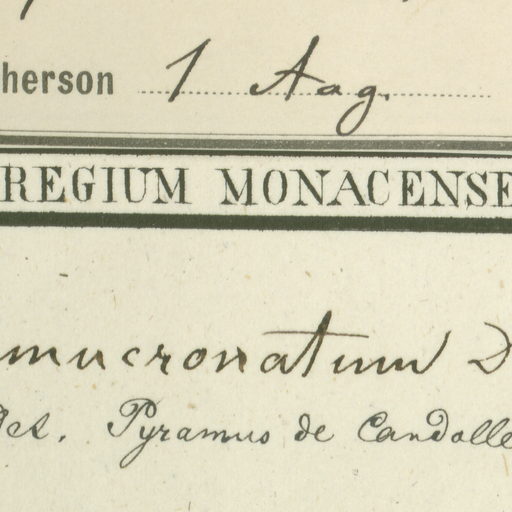 herson 1 Aug.
REGIUM MONACENSE
mucronatum D
Det. Pyramus de Candolle